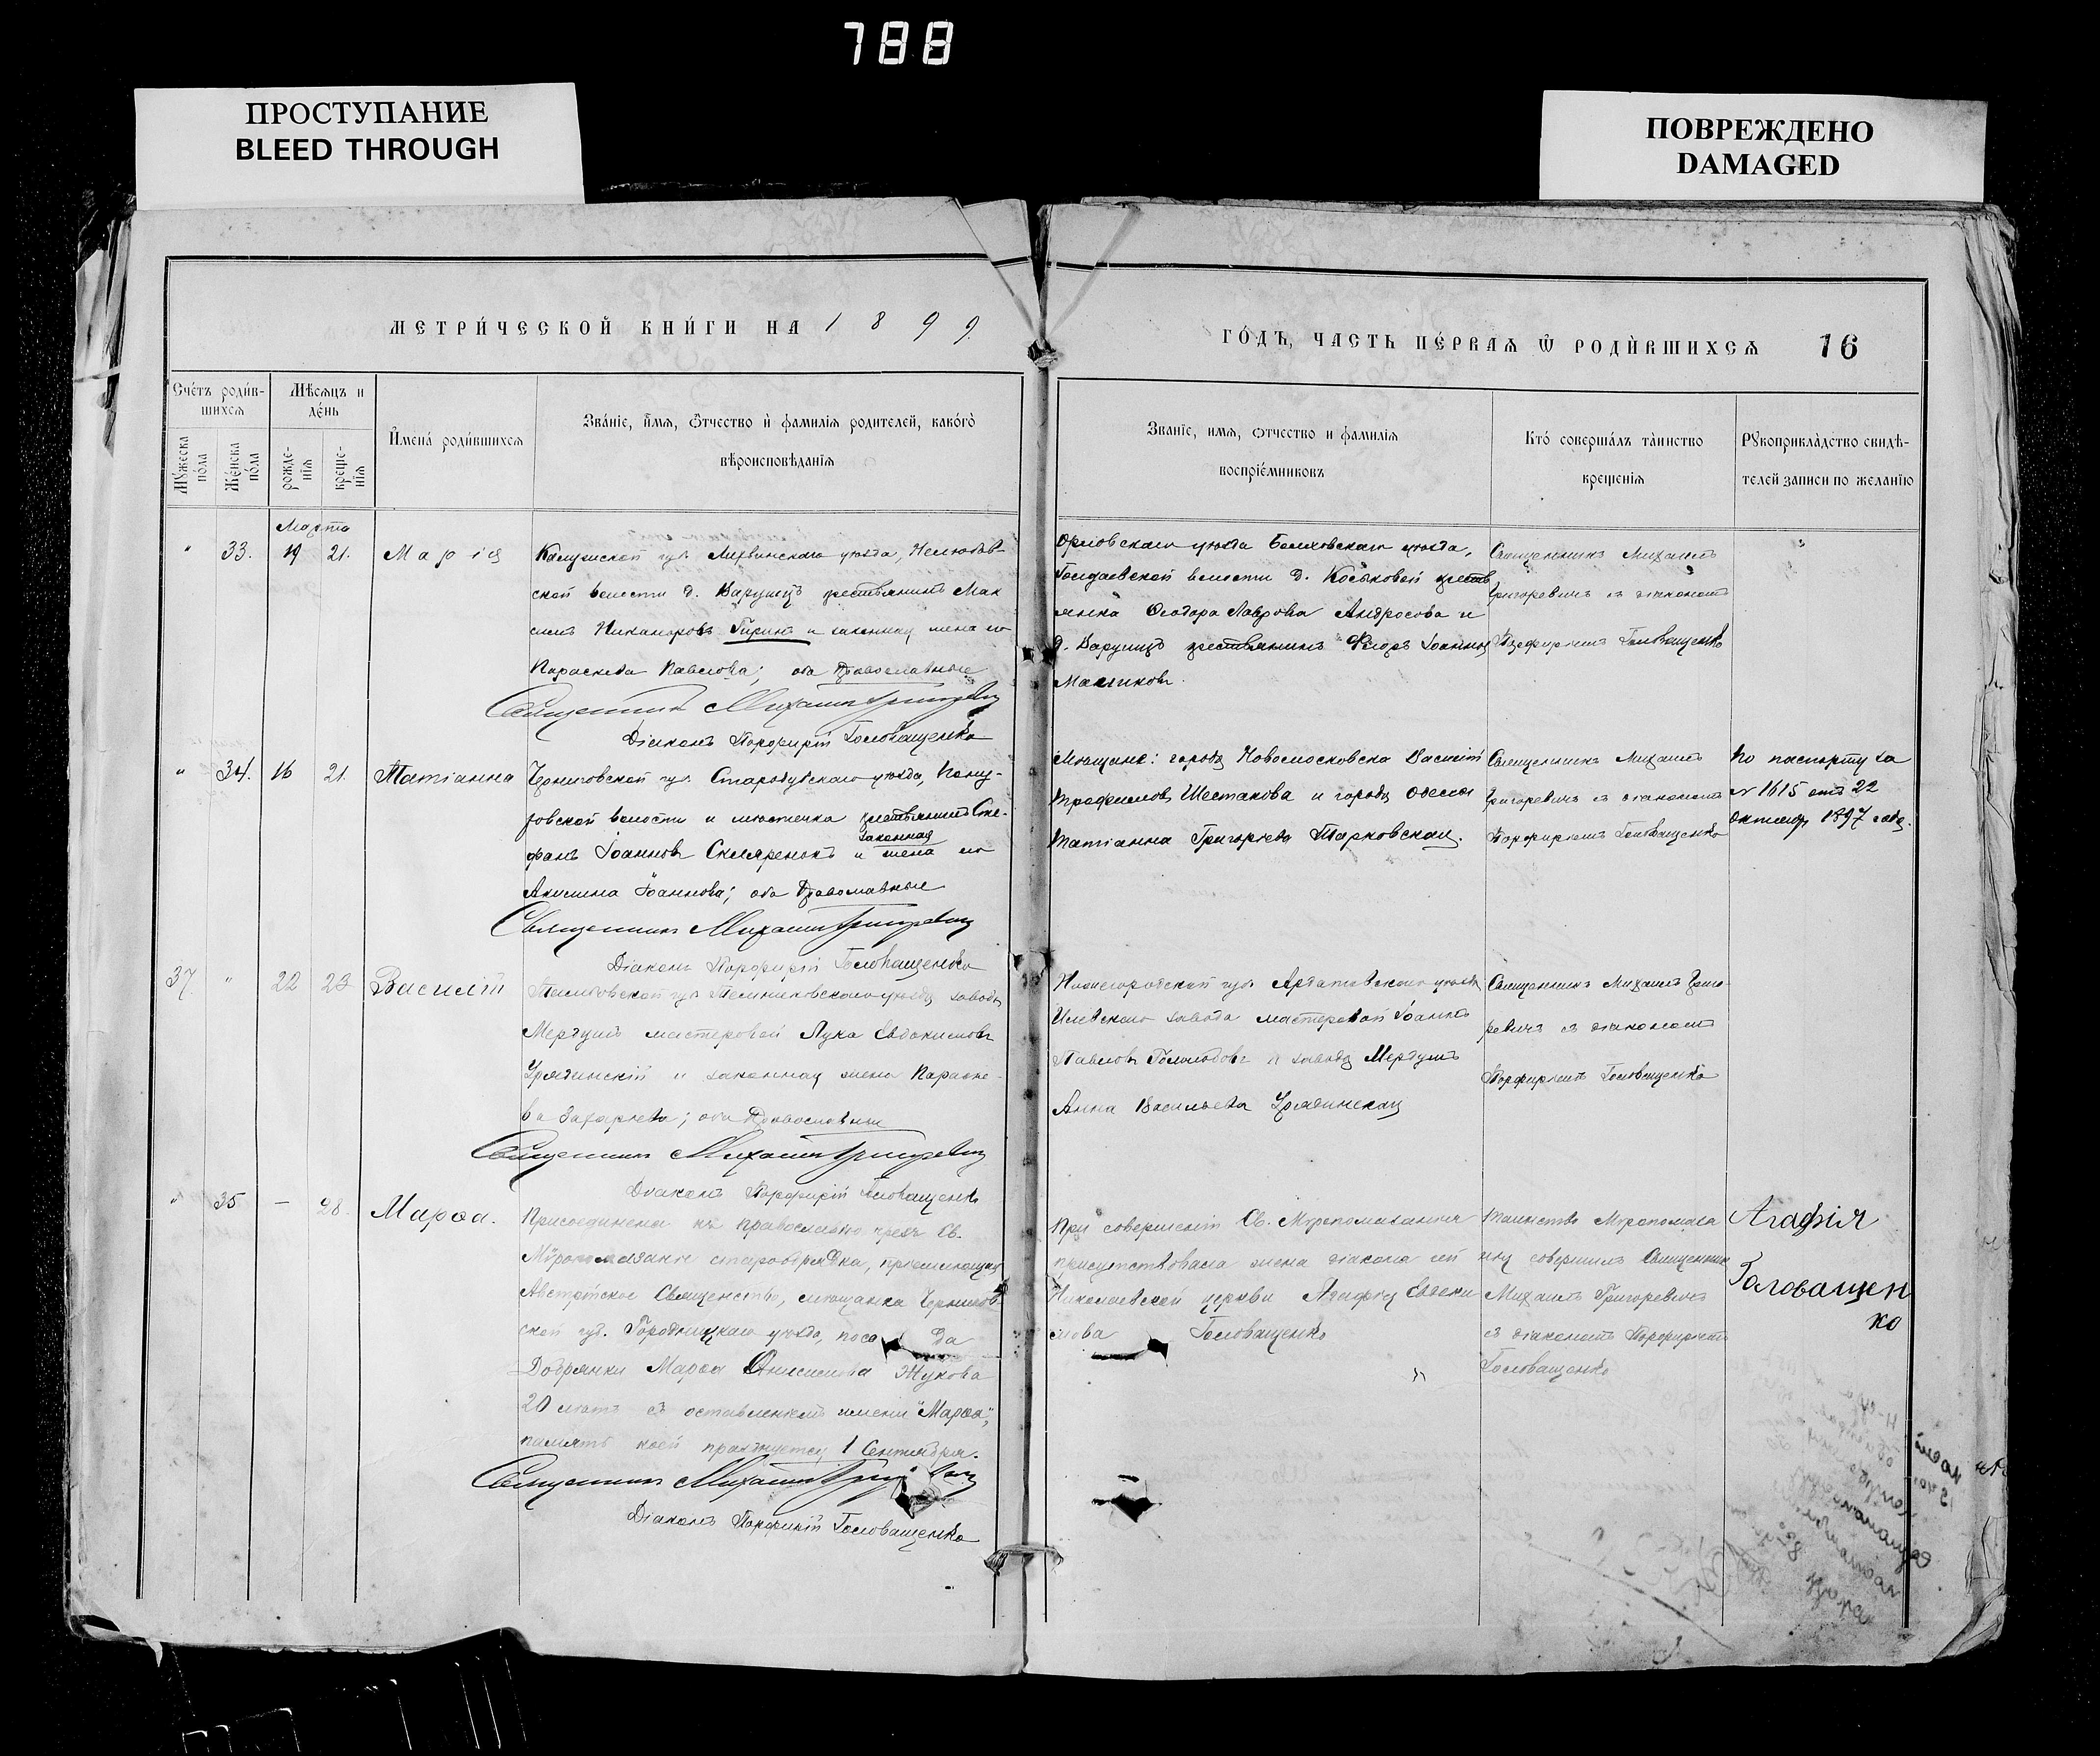 788
ПРОСТУПАНИЕ
BLEED THROUGH
ПОВРЕЖДЕНО
DAMAGED
МЕТРИ́ЧЕСКОЙ КНИ́ГИ НА 1899
ГО́ДЪ, ЧАСТЬ ПЕ́РВАѦ Ѿ РОДИ́ВШИХСѦ 16
Сче́тъ роди́в-
шихсѧ
Мѣсѧцъ и
де́нь
Му́жеска
по́ла
Же́нска
по́ла
рожде-
нїѧ
креще-
нїѧ
Имена́ роди́вшихсѧ
Зва́нїе, и́мѧ, ѻ́тчество и фамилїѧ родителей, како́гѡ
вѣроисповѣданїѧ
Званїе, имѧ, ѻтчество и фамилїѧ
воспрїе́мниковъ
Кто́ соверша́лъ та́инство
крещенїѧ
Рꙋкоприкла́дство свидѣ-
телей записи по желанїю
Марта
" 33. 19 21. Марія
Калужской губ. Лихвинскаго уѣзда,
ской волости д. крестьянинъ Мак
симъ Никаноровъ Гиринъ и законная жена его
Параскева Павлова; оба Православные
Священникъ Михаилъ Григоревичъ
Діаконъ Порфирій Головащенко
Орловскаго уѣзда Болховскаго уѣзда,
волости д. Коськовой кресть
янка Ѳеодора Лаврова Андросова и
д. крестьянинъ Іоанновъ
Священникъ Михаилъ
Григоревичъ съ діакономъ
Порфиріемъ Головащенко
"
" 34. 16 21. Татіанна
Черниговской губ. Стародубскаго уѣзда, Пону-
ровской волости и мѣстечка крестьянинъ Сте-
законная
фанъ Іоанновъ Скляренокъ и жена его
Акилина Іоаннова; оба Православные
Священникъ Михаилъ Григоревичъ
Діаконъ Порфирій Головащенко
Мѣщане: города Новомосковска Василій
Трофимовъ Шестакова и города Одессы
Татіанна Григорьева Тарковская.
Священникъ Михаилъ
Григоревичъ съ діакономъ
Порфиріемъ Головащенко
По паспорту за
№ 1615 отъ 22
октября 1897 года.
37 " 22 23 Василій
Тамбовской губ. Темниковскаго уѣзда завода
Мердушъ мастеровой Лука Евдокимовъ
Урядинскій и законная жена Параске-
ва Захарьева; оба Православные
Священникъ Михаилъ Григоревичъ
Діаконъ Порфирій Головащенко
Нижегородской губ. Ардатовскаго уѣзда
Илевскаго завода мастеровой Іоаннъ
Павловъ и завода Мердушъ
Анна Васильева Урядинская
Священникъ Михаилъ Григо-
ревичъ съ діакономъ
Порфиріемъ Головащенко
" 35 — 28. Марѳа.
Присоединена къ православію чрезъ Св.
Мѵропомазаніе старообрядка, пріемлющая
Австрійское Священство, мѣщанка Чернигов-
ской губ. Городницкаго уѣзда, поса да
Добрянки Марѳа Онисимова Жукова
20 лѣтъ съ оставленіемъ имени "Марѳа",
память коей празднуется 1 Сентября.
Священникъ Михаилъ Григоревичъ
Діаконъ Порфирій Головащенко
При совершеніи Св. Мѵропомазанія
присутствовала жена діакона сей
Николаевской церкви Агафія Евдоки
мова Головащенко
"
Таинство Мѵропомаза
нія совершилъ Священникъ
Михаилъ Григоревичъ
съ діакономъ Порфиріемъ
Головащенко
Агафія
Головащен
ко